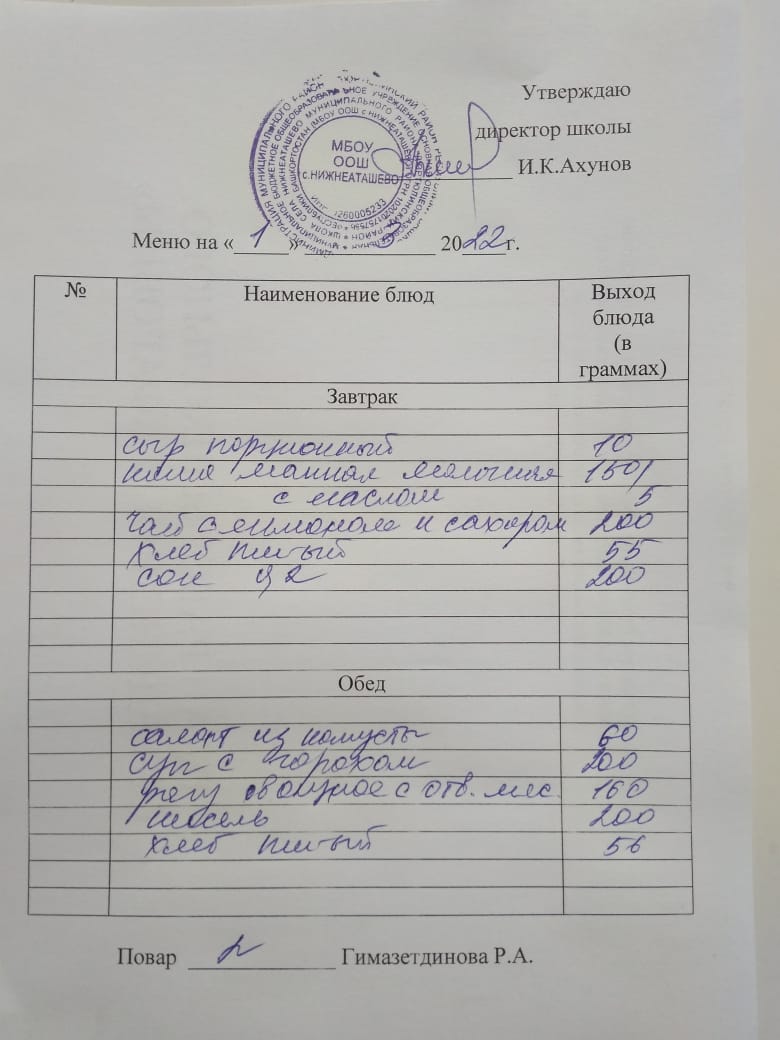 Утверждаю
директор школы
И.К.Ахунов
МБОУ
ООШ
с.НИЖНЕАТАШЕВО
Меню на «1» 3 2022г.
№ Наименование блюд Выход
блюда
(в
граммах)
Завтрак
сыр порционный 10
каша манная молочная 150/
с маслом 5
чай с лимоном и сахаром 200
хлеб 55
сок 200
Обед
салат из капусты 60
суп с горохом 200
рагу овощное с отв. мяс. 160
кисель 200
хлеб 56
Повар Гимазетдинова Р.А.